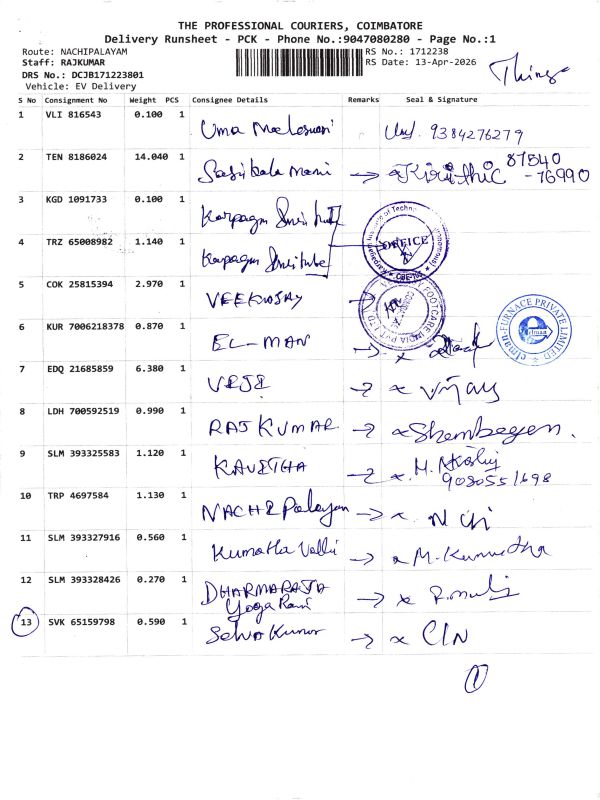 THE PROFESSIONAL COURIERS, COIMBATORE
Delivery Runsheet - PCK - Phone No.:9047080280 - Page No.:1
Route: NACHIPALAYAM RS No.: 1712238
Staff: RAJKUMAR RS Date: 13-Apr-2026
DRS No.: DCJB171223801
Vehicle: EV Delivery
Things
S No Consignment No Weight PCS Consignee Details Remarks Seal & Signature
1 VLI 816543 0.100 1 Uma 9384276279
2 TEN 8186024 14.040 1 Sasikala Mani Kiruthic 87540 -76990
3 KGD 1091733 0.100 1 Karpagam
4 TRZ 65008982 1.140 1 Karpagam OFFICE
5 COK 25815394 2.970 1 VEEKJAY
6 KUR 7006218378 0.870 1 EL-MAN
elman-FURNACE PRIVATE LIMITED
elman
7 EDQ 21685859 6.380 1 Vijay
8 LDH 700592519 0.990 1 RAJ KUMAR Shenbagam.
9 SLM 393325583 1.120 1 KAVITHA M. 9080551698
10 TRP 4697584 1.130 1 NACHIPalayam
11 SLM 393327916 0.560 1 Kumutha Valli M. Kumutha
12 SLM 393328426 0.270 1 DHARMARAJA
Yoga Rani
13 SVK 65159798 0.590 1 Selva Kumar
1